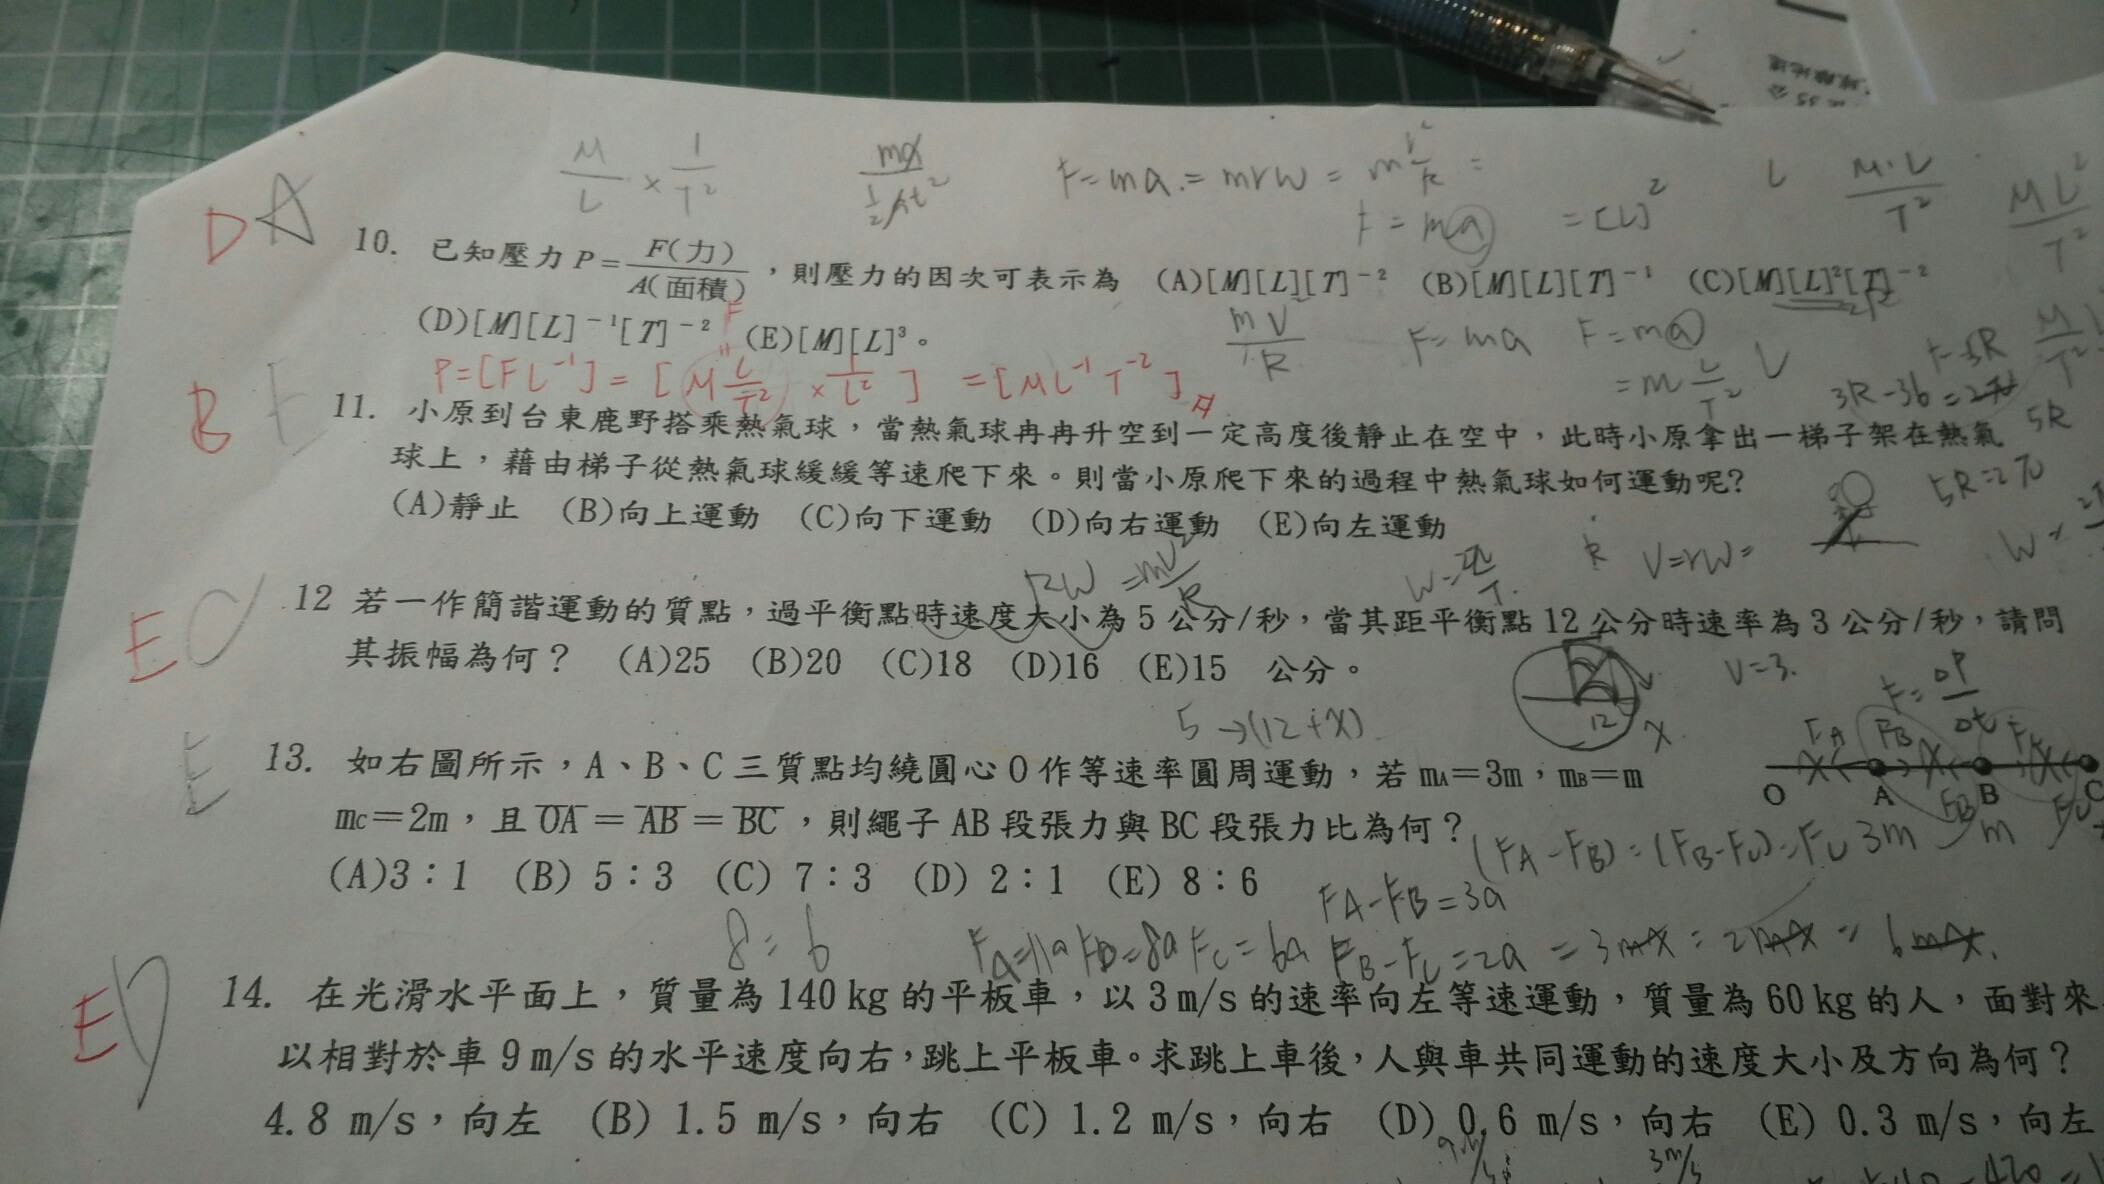 M/L × 1/T²
F=ma=mrw=
F=ma =[L]²
M·L/T²
ML²/T²
D A
10. 已知壓力 P=F(力)/A(面積)，則壓力的因次可表示為 (A)[M][L][T]⁻² (B)[M][L][T]⁻¹ (C)[M][L]²[T]⁻²
(D)[M][L]⁻¹[T]⁻² (E)[M][L]³。
F=ma F=ma
P=[FL⁻¹]=[M L/T² × 1/L²] =[ML⁻¹T⁻²]
B E
11. 小原到台東鹿野搭乘熱氣球，當熱氣球冉冉升空到一定高度後靜止在空中，此時小原拿出一梯子架在熱氣
球上，藉由梯子從熱氣球緩緩等速爬下來。則當小原爬下來的過程中熱氣球如何運動呢?
(A)靜止 (B)向上運動 (C)向下運動 (D)向右運動 (E)向左運動
5R
V=rw=
E C
12 若一作簡諧運動的質點，過平衡點時速度大小為 5 公分/秒，當其距平衡點 12 公分時速率為 3 公分/秒，請問
其振幅為何？ (A)25 (B)20 (C)18 (D)16 (E)15 公分。
V=3.
5→(12+X)
12
X
E
13. 如右圖所示，A、B、C 三質點均繞圓心 O 作等速率圓周運動，若 mA=3m，mB=m
mC=2m，且 OA=AB=BC，則繩子 AB 段張力與 BC 段張力比為何？
(A)3：1 (B) 5：3 (C) 7：3 (D) 2：1 (E) 8：6
O A B C
3m m
FA-FB=3a
FB-FC=2a
E D
14. 在光滑水平面上，質量為 140 kg 的平板車，以 3 m/s 的速率向左等速運動，質量為 60 kg 的人，面對來
以相對於車 9 m/s 的水平速度向右，跳上平板車。求跳上車後，人與車共同運動的速度大小及方向為何？
4.8 m/s，向左 (B) 1.5 m/s，向右 (C) 1.2 m/s，向右 (D) 0.6 m/s，向右 (E) 0.3 m/s，向左
9 m/s 3 m/s